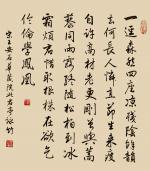 一逕森然四座凉殘陰餘韻
去何長人憐直節生來瘦
自許高材老更剛曾與蒿
藜同雨露終隨松柏到冰
霜煩君惜取根株在欲乞
伶倫學鳳凰
宋王安石華藏院此君亭詠竹